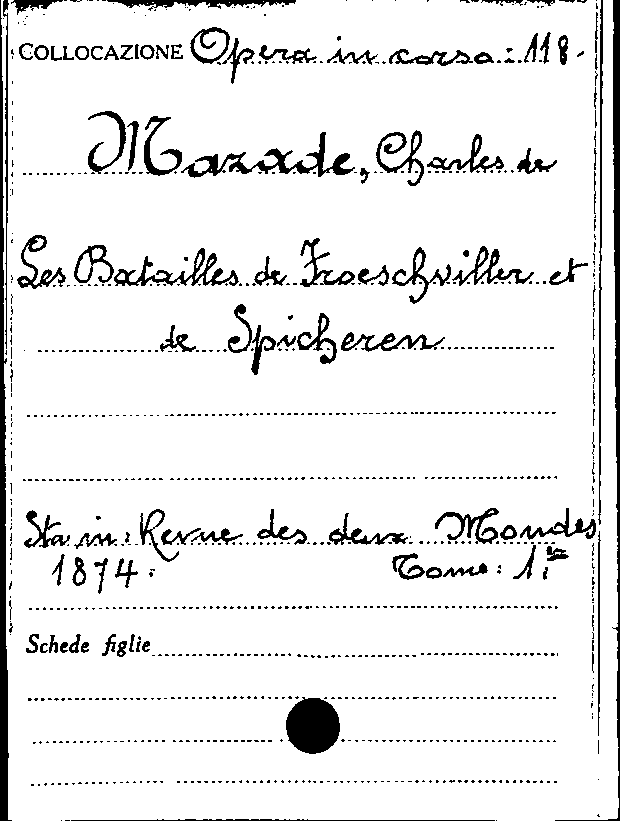 COLLOCAZIONE Opera in corso: 118.
Mazade, Charles de
Les Batailles de Froeschviller et
de Spicheren
Sta in: Revue des deux Mondes
1874. Tome: 1.er
Schede figlie